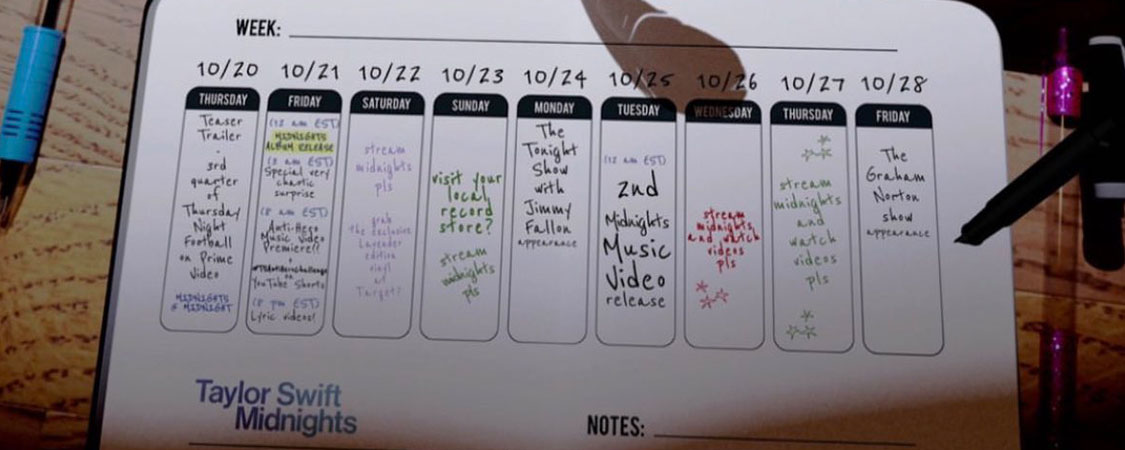 WEEK:
10/20 10/21 10/22 10/23 10/24 10/25 10/26 10/27 10/28
THURSDAY
Teaser
Trailer
-
3rd
quarter
of
Thursday
Night
Football
on Prime
Video
MIDNIGHTS
@ MIDNIGHT
FRIDAY
(12 am EST)
MIDNIGHTS
ALBUM RELEASE
(3 am EST)
Special very
chaotic
surprise
(8 am EST)
Anti-Hero
Music video
Premiere!!
+
#TSAntiHeroChallenge
on
YouTube Shorts
(8 pm EST)
Lyric videos!
SATURDAY
stream
midnights
pls
grab
the exclusive
lavender
edition
vinyl
at
Target?
SUNDAY
visit your
local
record
store?
stream
midnights
pls
MONDAY
The
Tonight
Show
with
Jimmy
Fallon
appearance
TUESDAY
(12 am EST)
2nd
Midnights
Music
Video
release
WEDNESDAY
stream
midnights
and watch
videos
pls
THURSDAY
stream
midnights
and
watch
videos
pls
FRIDAY
The
Graham
Norton
show
appearance
Taylor Swift
Midnights
NOTES: